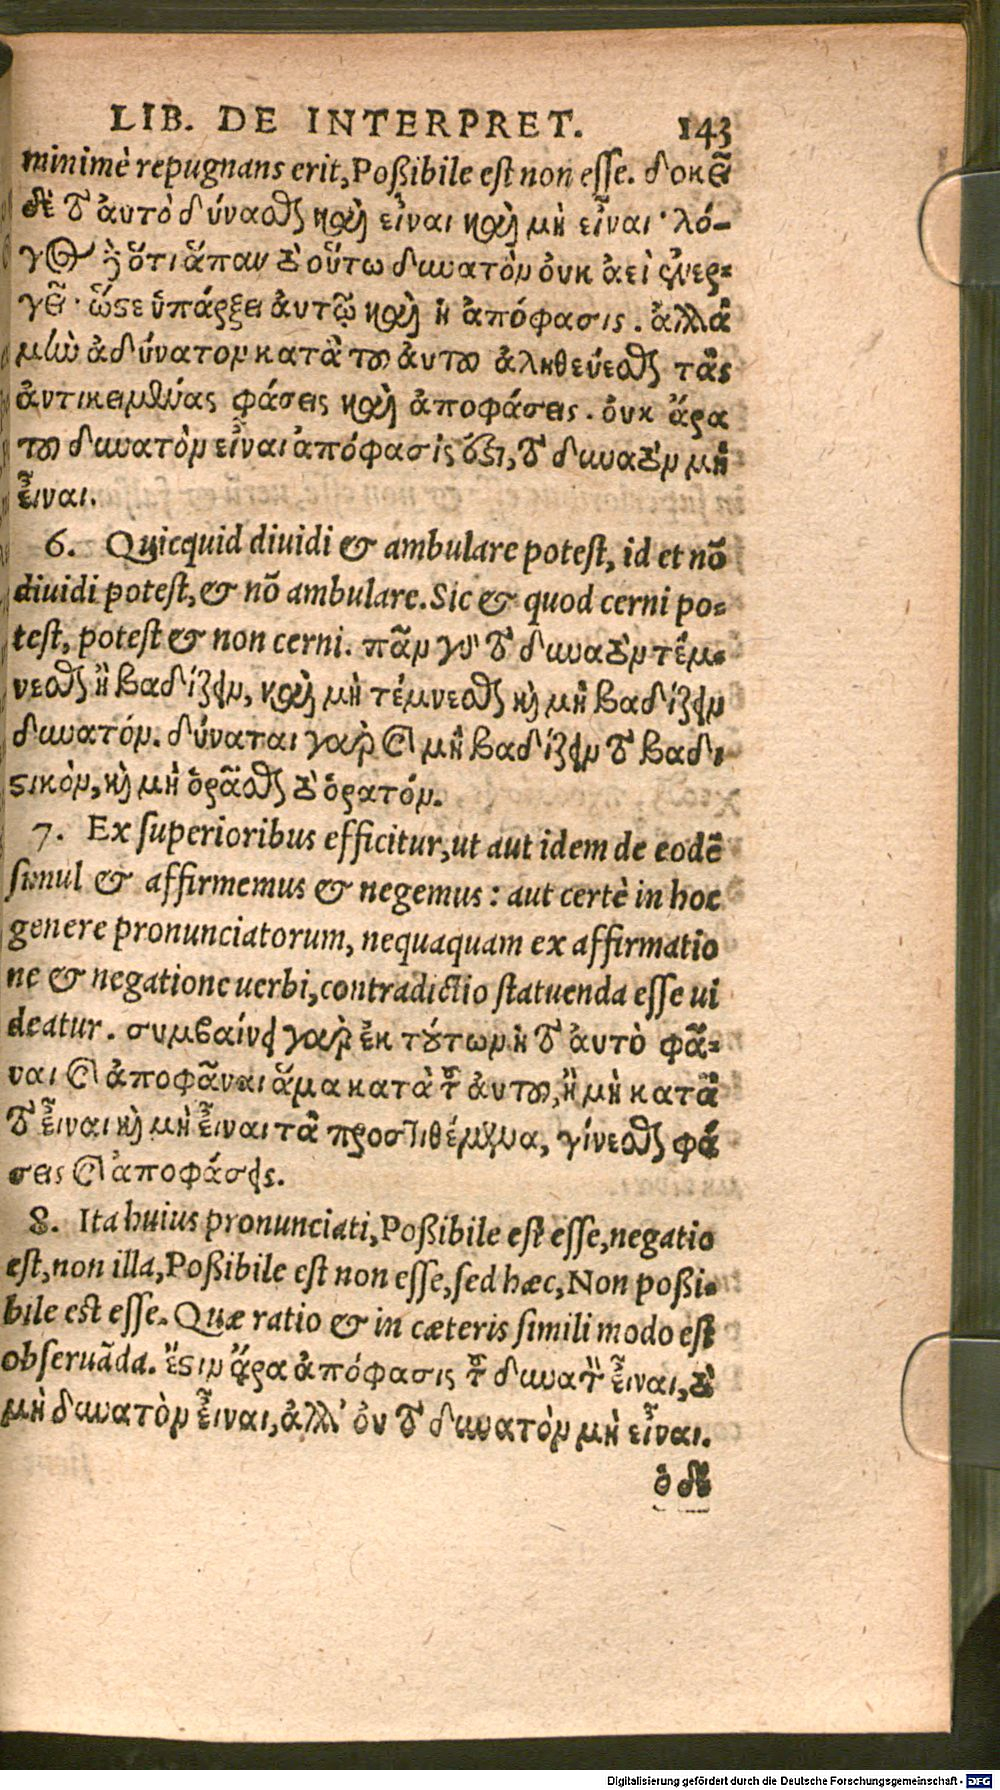 LIB. DE INTERPRET. 143
minimè repugnans erit, Poßibile est non esse. δοκεῖ
δὲ τὸ ἀυτὸ δύναϑαι καὶ εἶναι καὶ μὴ εἶναι· λό-
γος δ' ὅτι ἅπαν τὸ ὅυτω δυνατὸν ὀυκ ἀεὶ ἐνερ-
γεῖ· ὥςε ὑπάρξει ἀυτῷ καὶ ἡ ἀπόφασις. ἀλλὰ
μὴν ἀδύνατον κατὰ του ἀυτου ἀληθεύεϑαι τὰς
ἀντικειμένας φάσεις καὶ ἀποφάσεις. ὀυκ ἄρα
του δυνατὸν εἶναι ἀπόφασίς ἐςι, τὸ δυνατὸν μὴ
εἶναι.
6. Quicquid diuidi & ambulare potest, id et nõ
diuidi potest, & nõ ambulare. Sic & quod cerni po-
test, potest & non cerni. πᾶν γὰρ τὸ δυνατὸν τέμ-
νεϑαι ἢ βαδίζειν, καὶ μὴ τέμνεϑαι καὶ μὴ βαδίζειν
δυνατόν. δύναται γὰρ καὶ μὴ βαδίζειν τὸ βαδι
ςικὸν, καὶ μὴ ὁρᾶϑαι τὸ ὁρατόν.
7. Ex superioribus efficitur, ut aut idem de eodẽ
simul & affirmemus & negemus: aut certè in hoc
genere pronunciatorum, nequaquam ex affirmatio
ne & negatione uerbi, contradictio statuenda esse ui
deatur. συμβαίνει γὰρ ἐκ τούτων ἢ τὸ ἀυτὸ φά-
ναι καὶ ἀποφᾶναι ἅμα κατὰ τοῦ ἀυτου, ἢ μὴ κατὰ
τὸ εἶναι καὶ μὴ εἶναι τὰ προστιθέμενα, γίνεϑαι φά
σεις καὶ ἀποφάσεις.
8. Ita huius pronunciati, Poßibile est esse, negatio
est, non illa, Poßibile est non esse, sed hæc, Non poßi-
bile est esse. Quæ ratio & in cæteris simili modo est
obseruãda. ἔςιν ἄρα ἀπόφασις τοῦ δυνατὸν εἶναι, τὸ
μὴ δυνατὸν εἶναι, ἀλλ' ὀυ τὸ δυνατὸν μὴ εἶναι.
ὁ δὲ
Digitalisierung gefördert durch die Deutsche Forschungsgemeinschaft - DFG